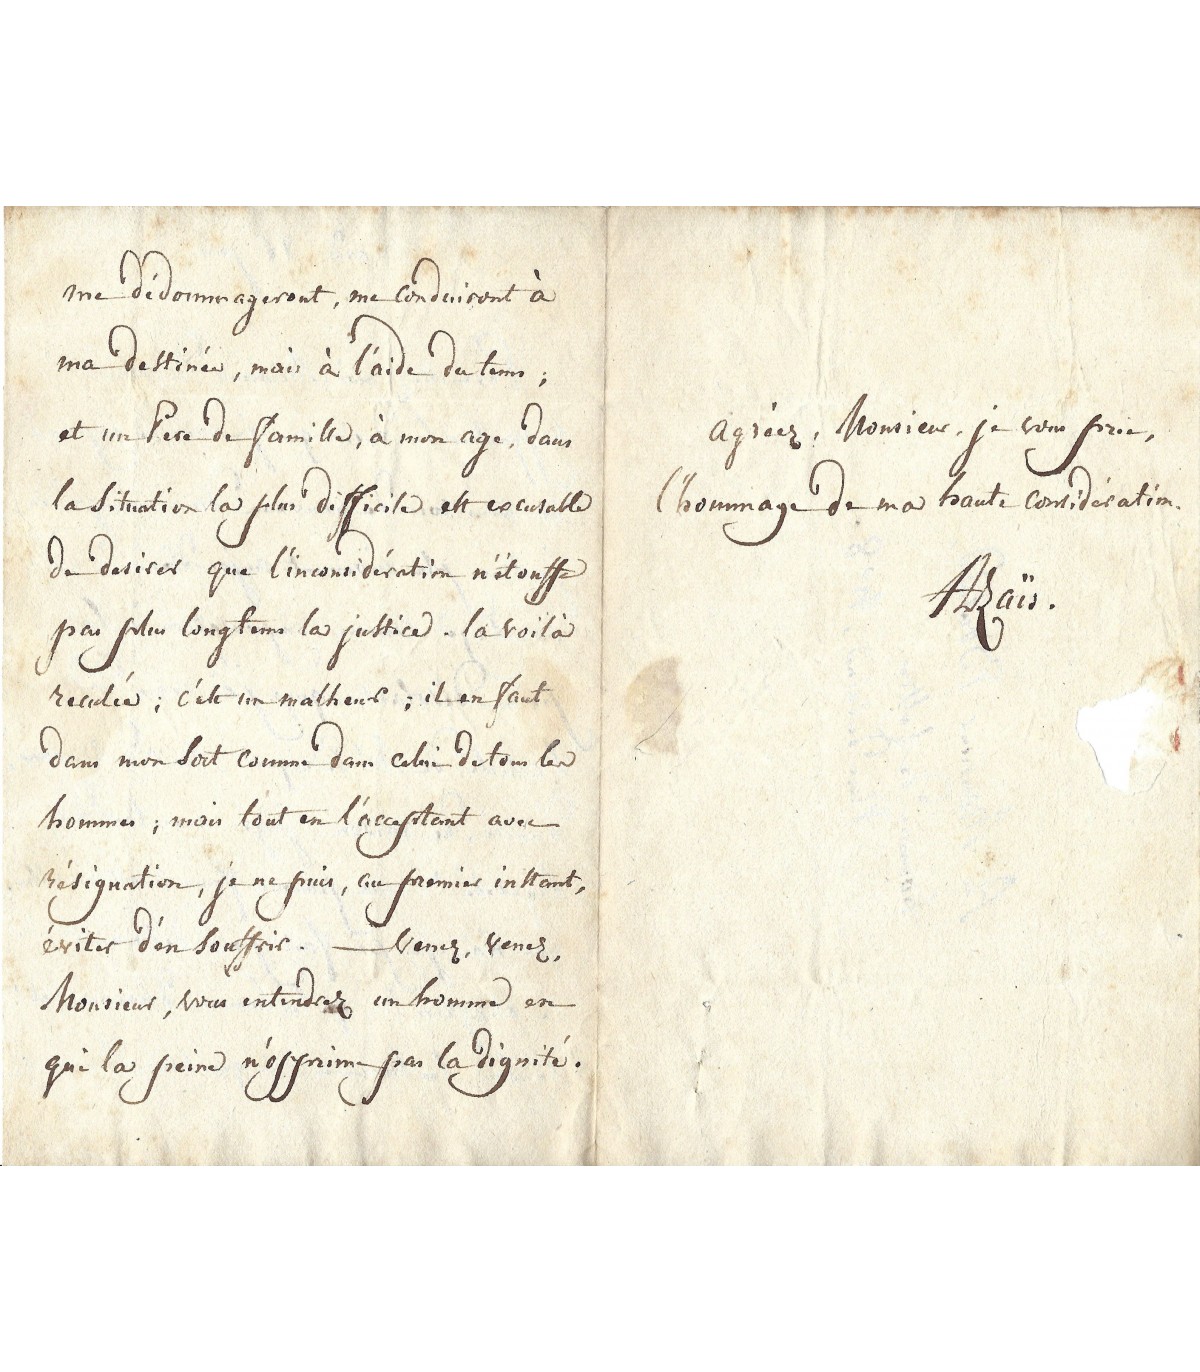 me dédommageront, me conduiront à
ma destinée, mais à l'aide du tems ;
et un Pere de famille, à mon age, dans
la situation la plus difficile est excusable
de desirer que l'inconsidération n'étouffe
pas plus longtems la justice. la voilà
reculée ; c'est un malheur ; il en faut
dans mon sort comme dans celui de tous les
hommes ; mais tout en l'acceptant avec
résignation, je ne puis, au premier instant,
éviter d'en souffrir. — Venez, venez,
Monsieur, vous entendrez un homme en
qui la peine n'opprime pas la dignité.
agréez, Monsieur, je vous prie,
l'hommage de ma haute considération.
Azaïs.